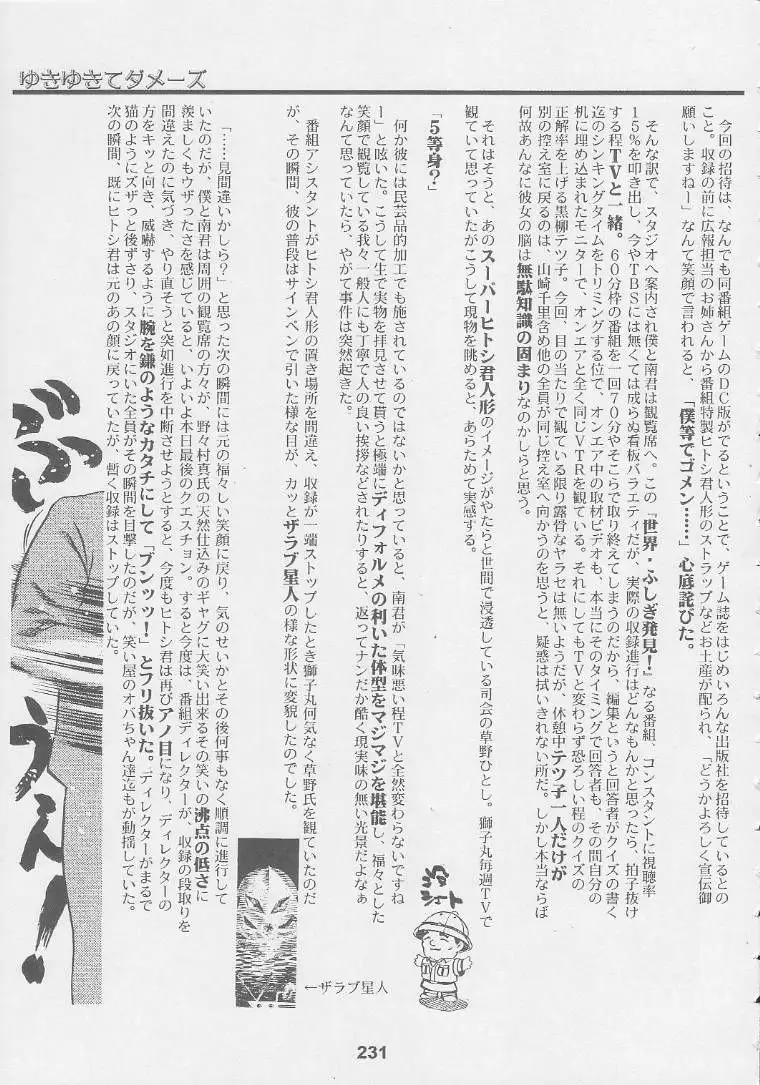 ゆきゆきてダメーズ
今回の招待は、なんでも同番組ゲームのDC版がでるということで、ゲーム誌をはじめいろんな出版社を招待しているとの
こと。収録の前に広報担当のお姉さんから番組特製ヒトシ君人形のストラップなどお土産が配られ、「どうかよろしく宣伝御
願いしますねー」なんて笑顔で言われると、「僕等でゴメン……」心底詫びた。
そんな訳で、スタジオへ案内され僕と南君は観覧席へ。この「世界・ふしぎ発見!」なる番組、コンスタントに視聴率
15%を叩き出し、今やTBSには無くては成らぬ看板バラエティだが、実際の収録進行はどんなもんかと思ったら、拍子抜け
する程TVと一緒。60分枠の番組を一回70分やそこらで取り終えてしまうのだから、編集というと回答者がクイズの書く
迄のシンキングタイムをトリミングする位で、オンエア中の取材ビデオも、本当にそのタイミングで回答者も、その間自分の
机に埋め込まれたモニターで、オンエアと全く同じVTRを観ている。それにしてもTVと変わらず恐ろしい程のクイズの
正解率を上げる黒柳テツ子。今回、目の当たりで観ている限り露骨なヤラセは無いようだが、休憩中テツ子一人だけが
別の控え室に戻るのは、山崎千里含め他の全員が同じ控え室へ向かうのを思うと、疑惑は拭いきれない所だ。しかし本当ならば
何故あんなに彼女の脳は無駄知識の固まりなのかしらと思う。
それはそうと、あのスーパーヒトシ君人形のイメージがやたらと世間で浸透している司会の草野ひとし。獅子丸毎週TVで
観ていて思っていたがこうして現物を眺めると、あらためて実感する。
「5等身?」
何か彼には民芸品的加工でも施されているのではないかと思っていると、南君が「気味悪い程TVと全然変わらないですね
ー」と呟いた。こうして生で実物を拝見させて貰うと極端にディフォルメの利いた体型をマジマジを堪能し、福々とした
笑顔で観覧している我々一般人にも丁寧で人の良い挨拶などされたりすると、返ってナンだか酷く現実味の無い光景だよなぁ
なんて思っていたら、やがて事件は突然起きた。
番組アシスタントがヒトシ君人形の置き場所を間違え、収録が一端ストップしたとき獅子丸何気なく草野氏を観ていたのだ
が、その瞬間、彼の普段はサインペンで引いた様な目が、カッとザラブ星人の様な形状に変貌したのでした。
「……見間違いかしら?」と思った次の瞬間には元の福々しい笑顔に戻り、気のせいかとその後何事もなく順調に進行して
いたのだが、僕と南君は周囲の観覧席の方々が、野々村真氏の天然仕込みのギャグに大笑い出来るその笑いの沸点の低さに
羨ましくもウザったさを感じていると、いよいよ本日最後のクエスチョン。すると今度は、番組ディレクターが、収録の段取りを
間違えたのに気づき、やり直そうと突如進行を中断させようとすると、今度もヒトシ君は再びアノ目になり、ディレクターの
方をキッと向き、威嚇するように腕を鎌のようなカタチにして「ブンッッ!」とフリ抜いた。ディレクターがまるで
猫のようにズザっと後ずさり、スタジオにいた全員がその瞬間を目撃したのだが、笑い屋のオバちゃん達迄もが動揺していた。
次の瞬間、既にヒトシ君は元のあの顔に戻っていたが、暫く収録はストップしていた。
←ザラブ星人
231